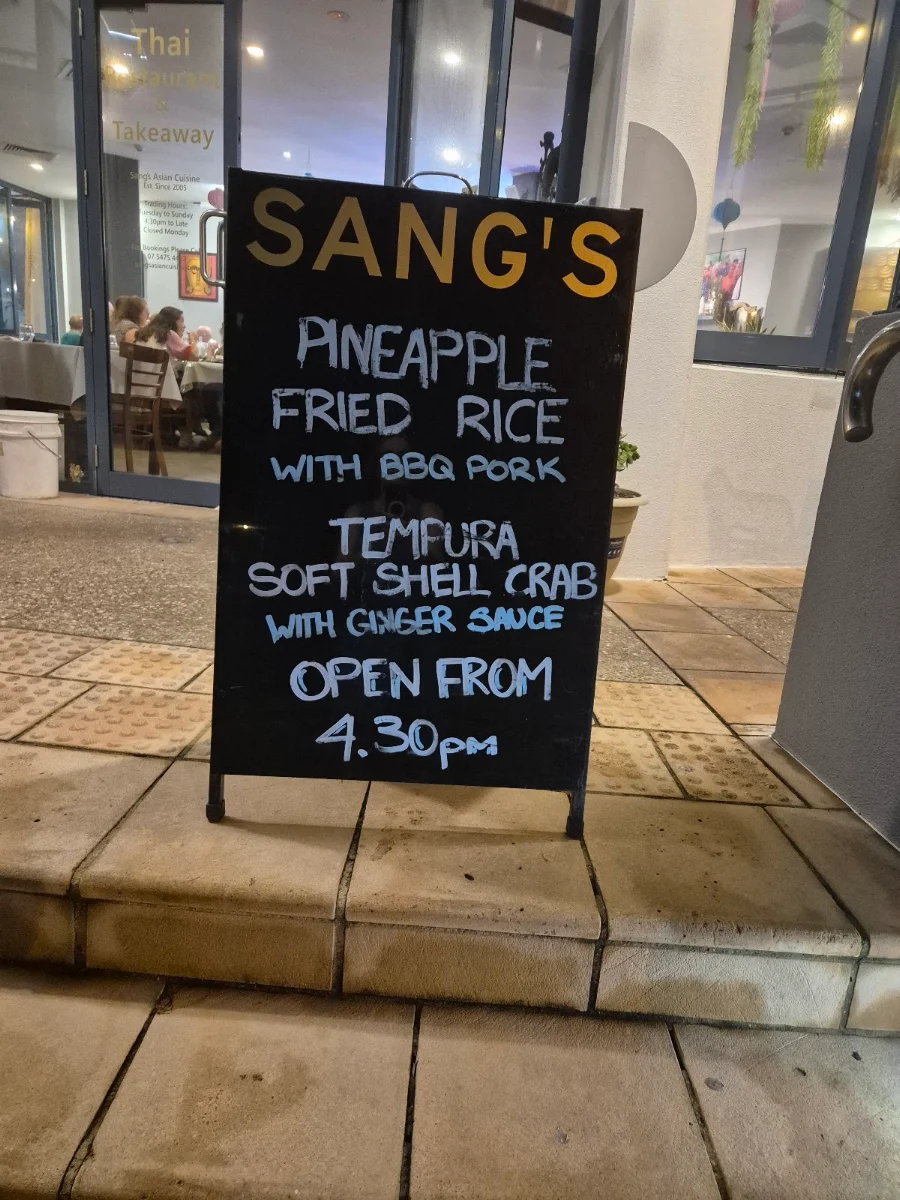 Thai
Restaurant
&
Takeaway
Sang's Asian Cuisine
Est. Since 2005
Trading Hours:
Tuesday to Sunday
4.30pm to Late
Closed Monday
bookings Please
07 5475
SANG'S
PINEAPPLE
FRIED RICE
WITH BBQ PORK
TEMPURA
SOFT SHELL CRAB
WITH GINGER SAUCE
OPEN FROM
4.30pm